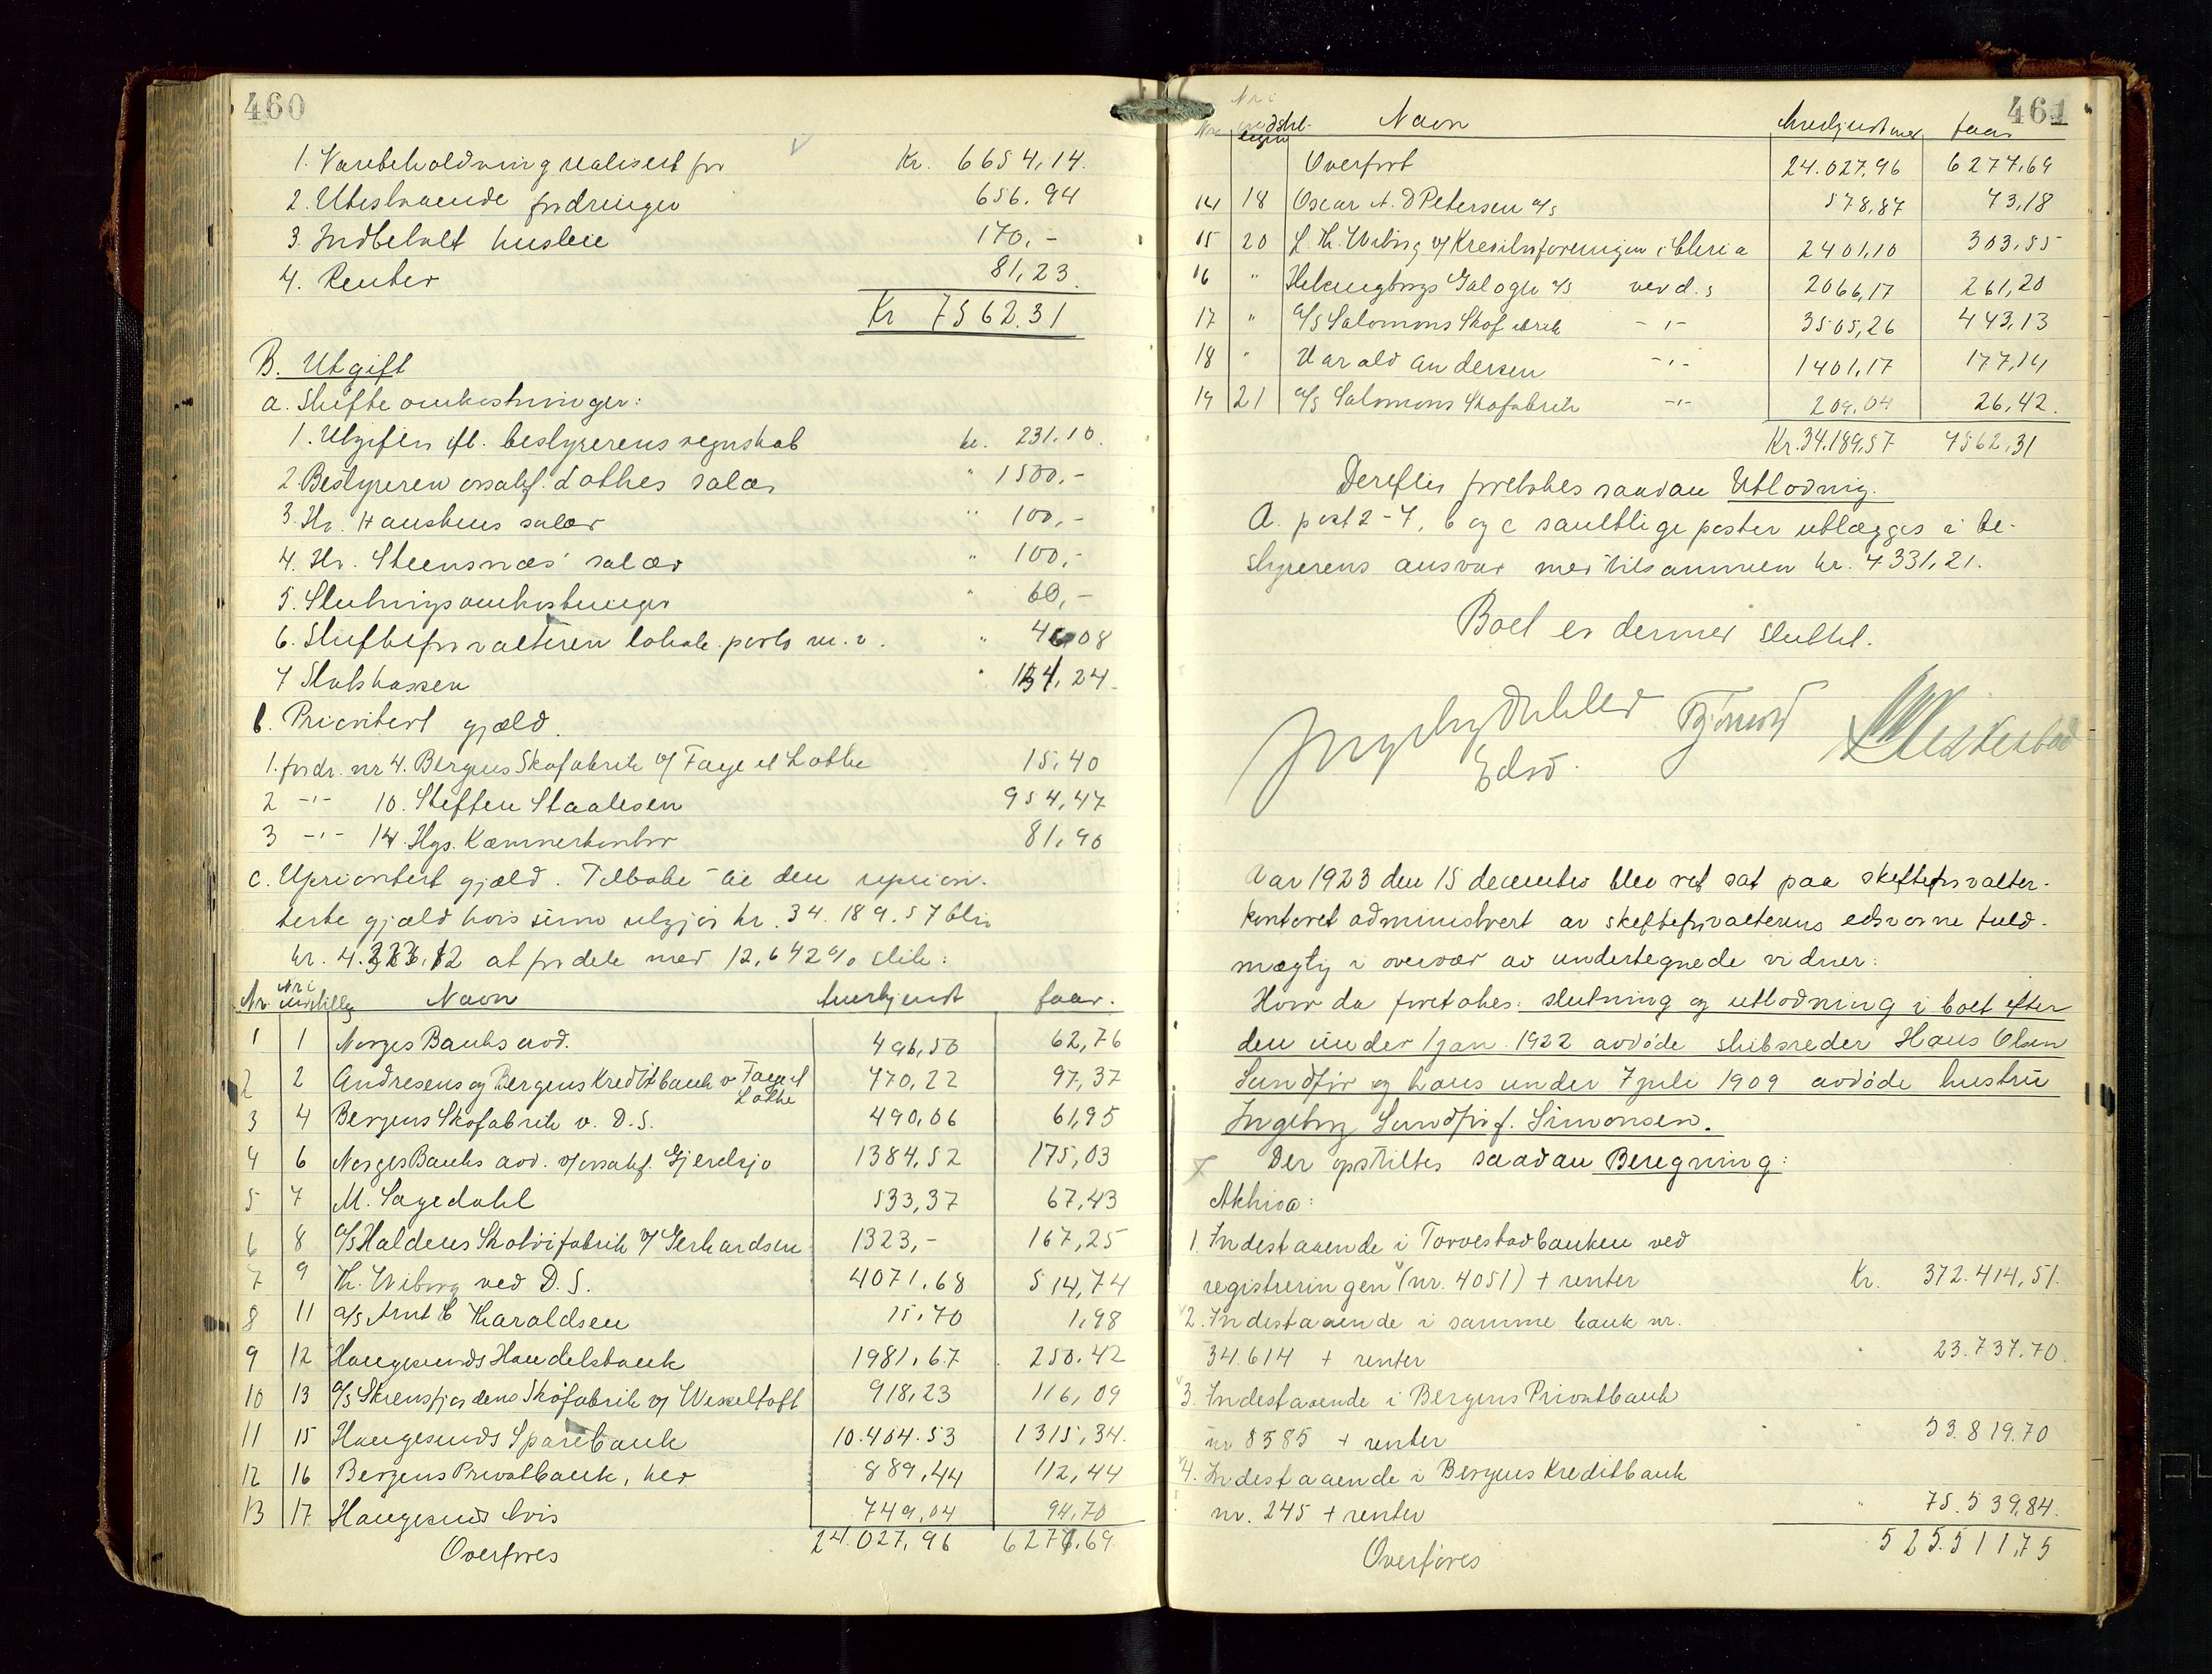 460
1. Varebeholdning realisert for Kr. 6654,14.
2. Utestaaende fordringer 656,94
3. Indbetalt husleie 170,-
4. Renter 81,23
Kr 7562.31
B. Utgift
a. Skifteomkostninger:
1. Utgifter efl. bestyrerens regnskab kr. 231.10.
2. Bestyreren ovsakf. Lothes salær " 1500,-
3. Hr. Haushens salær " 100,-
4. Hr. Steensnæs' salær " 100,-
5. Slutningsomkostninger " 60,-
6. Skifteforvalteren lokale. porto m.v. "
7 Statskassen " 24.
b. Prioritert gjæld.
1. fordr. nr 4. Bergens Skofabrik v/ Faye et Lothe 15.40
2 -"- 10. Steffen Staalesen 954,47
3 -"- 14. Hgs. Kæmnerkontor 81,90
c. Uprioritert gjæld. Tilbake til den uprior-
terte gjæld hvis sum utgjør kr. 34.189.57 blir
kr. 4. at fordele med 12,642% slik:
Nr. Nr i indstilling Navn Anerkjendt faar.
1 1 Norges Banks avd. 496,50 62,76
2 2 Andresens og Bergens Kreditbank v Faye et Lothe 770,22 97,37
3 4 Bergens Skofabrik v. D.S. 490,06 61,95
4 6 Norges Banks avd. v/ovsakf. Gjerdsjø 1384,52 175,03
5 7 M. Sagedahl 533,37 67,43
6 8 A/S Haldens Skotøifabrik v/ Gerhardsen 1323,- 167,25
7 9 Th. Wiborg ved D.S. 4071,68 514,74
8 11 A/S Arnt C Haraldsen 15,70 1,98
9 12 Haugesunds Handelsbank 1981,67 250.42
10 13 A/S Skrensfjordens Skofabrik v/ Wesseltoft 918,23 116,09
11 15 Haugesunds Sparebank 10.404.53 1315,34.
12 16 Bergens Privatbank, her 889,44 112,44
13 17 Haugesunds Avis 749,04 94,70
Overføres 24.027,96 6277,69
461
Nr. Nr i indstillingen Navn Anerkjendt med faar
Overført 24.027,96 6277,69
14 18 Oscar A. D Petersen A/S 578,87 73,18
15 20 L. Th. Wiborg v/ Kreditforeningen i Chria 2401,10 303,55
16 " Helsingborgs Galoge A/S ved d.s 2066,17 261,20
17 " A/S Salomons Skofabrik -"- 3505,26 443,13
18 " Harald Andersen -"- 1401,17 177,14
19 21 A/S Salomons Skofabrik -"- 209,04 26,42.
Kr. 34.189,57 7562,31
Derefter foretokes saadan Utlodning.
A. post 2-7, b og c samtlige poster utlægges i be-
styrerens ansvar med tilsammen kr. 7331,21.
Boet er dermed sluttet.
Edsv.
Aar 1923 den 15 december blev ret sat paa skifteforvalter-
kontoret administrert av skifteforvalterens edsvorne fuld-
mægtig i overvær av undertegnede vidner:
Hvor da foretokes: slutning og utlodning i boet efter
den under 1 jan. 1922 avdøde skibsreder Hans Olsen
Sundfør og hans under 7 juli 1909 avdøde hustru
Ingeborg Sundfør f. Simonsen.
Der opstilles saadan Beregning:
Aktiva:
1. Indestaaende i Torvestadbanken ved
registreringen (nr. 4051) + renter Kr. 372.414,51.
2. Indestaaende i samme bank nr.
34.614 + renter " 23.737.70.
3. Indestaaende i Bergens Privatbank
nr 8585 + renter " 53.819.70
4. Indestaaende i Bergens Kreditbank
nr. 245 + renter " 75.539,84.
Overføres 525.511,75